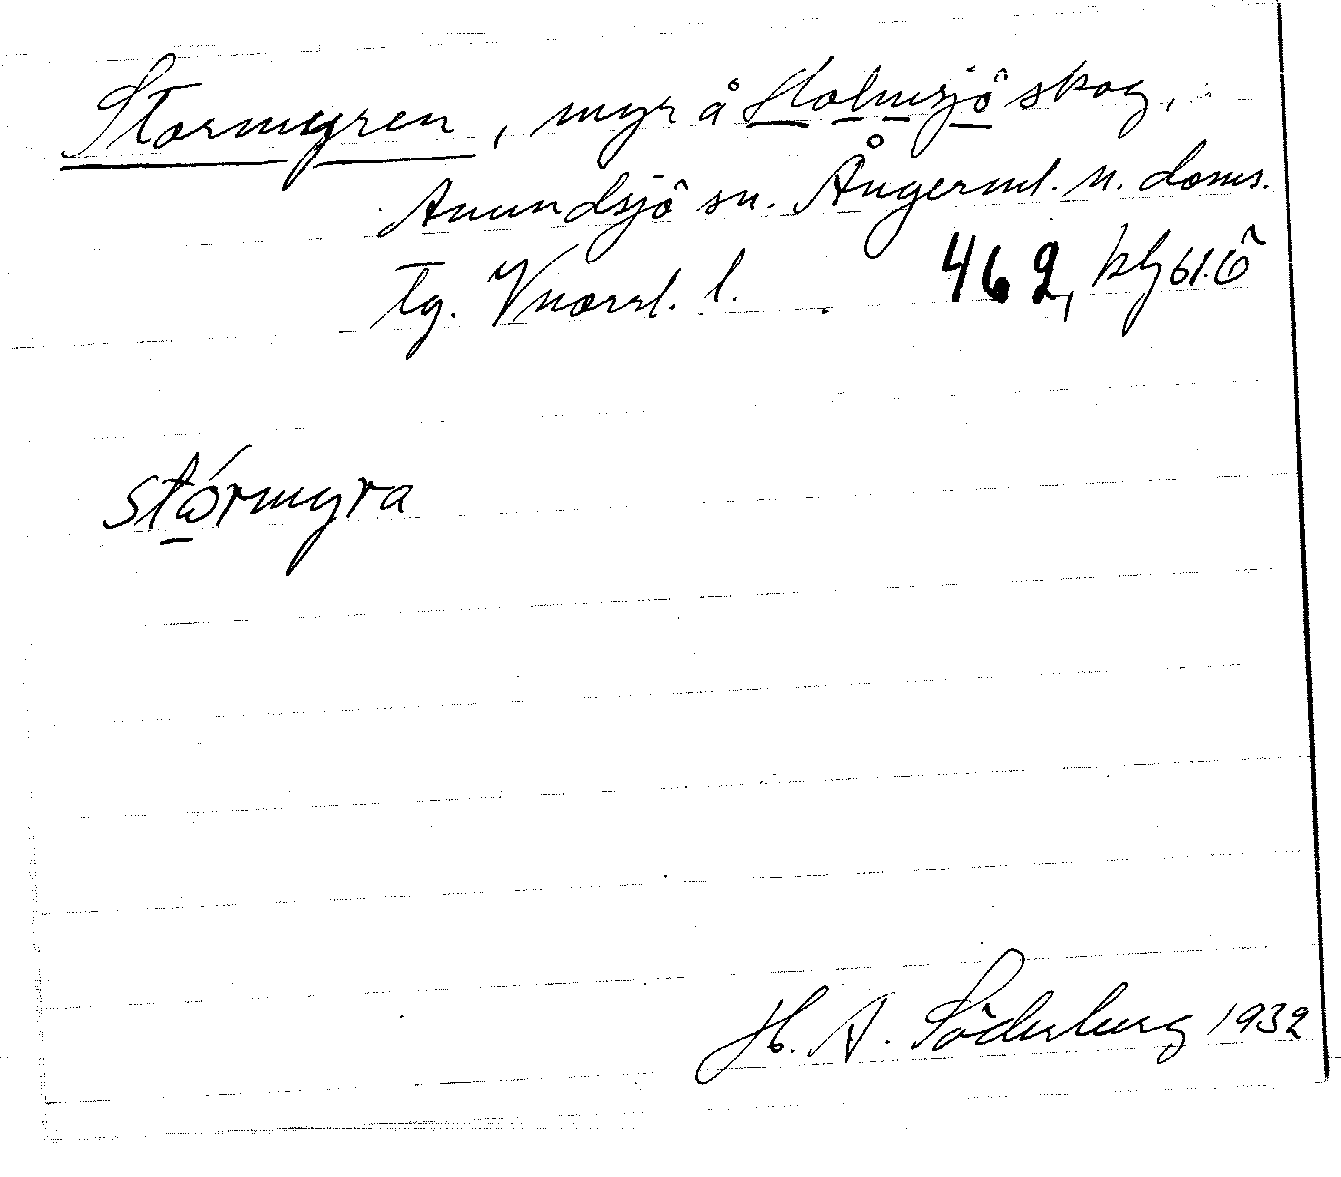 Stormyren, myr å Holmsjö skog,
Anundsjö sn. Ångerml. n. doms.
tg. Vnorrl. l. 462, kbl 61.Ö
stórmyra
H. A. Söderberg 1932